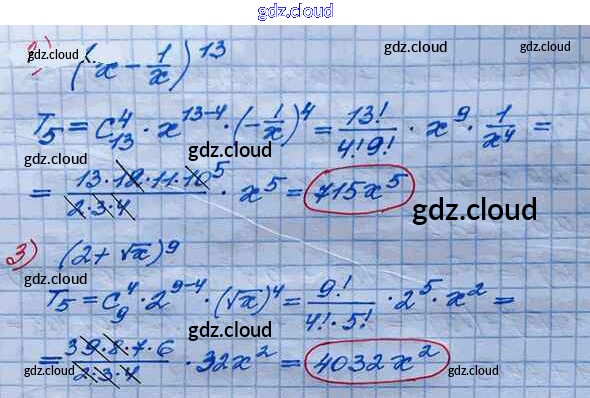 gdz.cloud
2) (x - 1/x)^13
gdz.cloud gdz.cloud
T_5 = C_13^4 · x^(13-4) · (-1/x)^4 = 13!/(4!9!) · x^9 · 1/x^4 =
gdz.cloud
= (13·12·11·10^5)/(2·3·4) · x^5 = 715x^5
gdz.cloud gdz.cloud
3) (2 + √x)^9
gdz.cloud
T_5 = C_9^4 · 2^(9-4) · (√x)^4 = 9!/(4!·5!) · 2^5 · x^2 =
gdz.cloud
= (3 9·8·7·6)/(2·3·4) · 32x^2 = 4032x^2
gdz.cloud gdz.cloud gdz.cloud